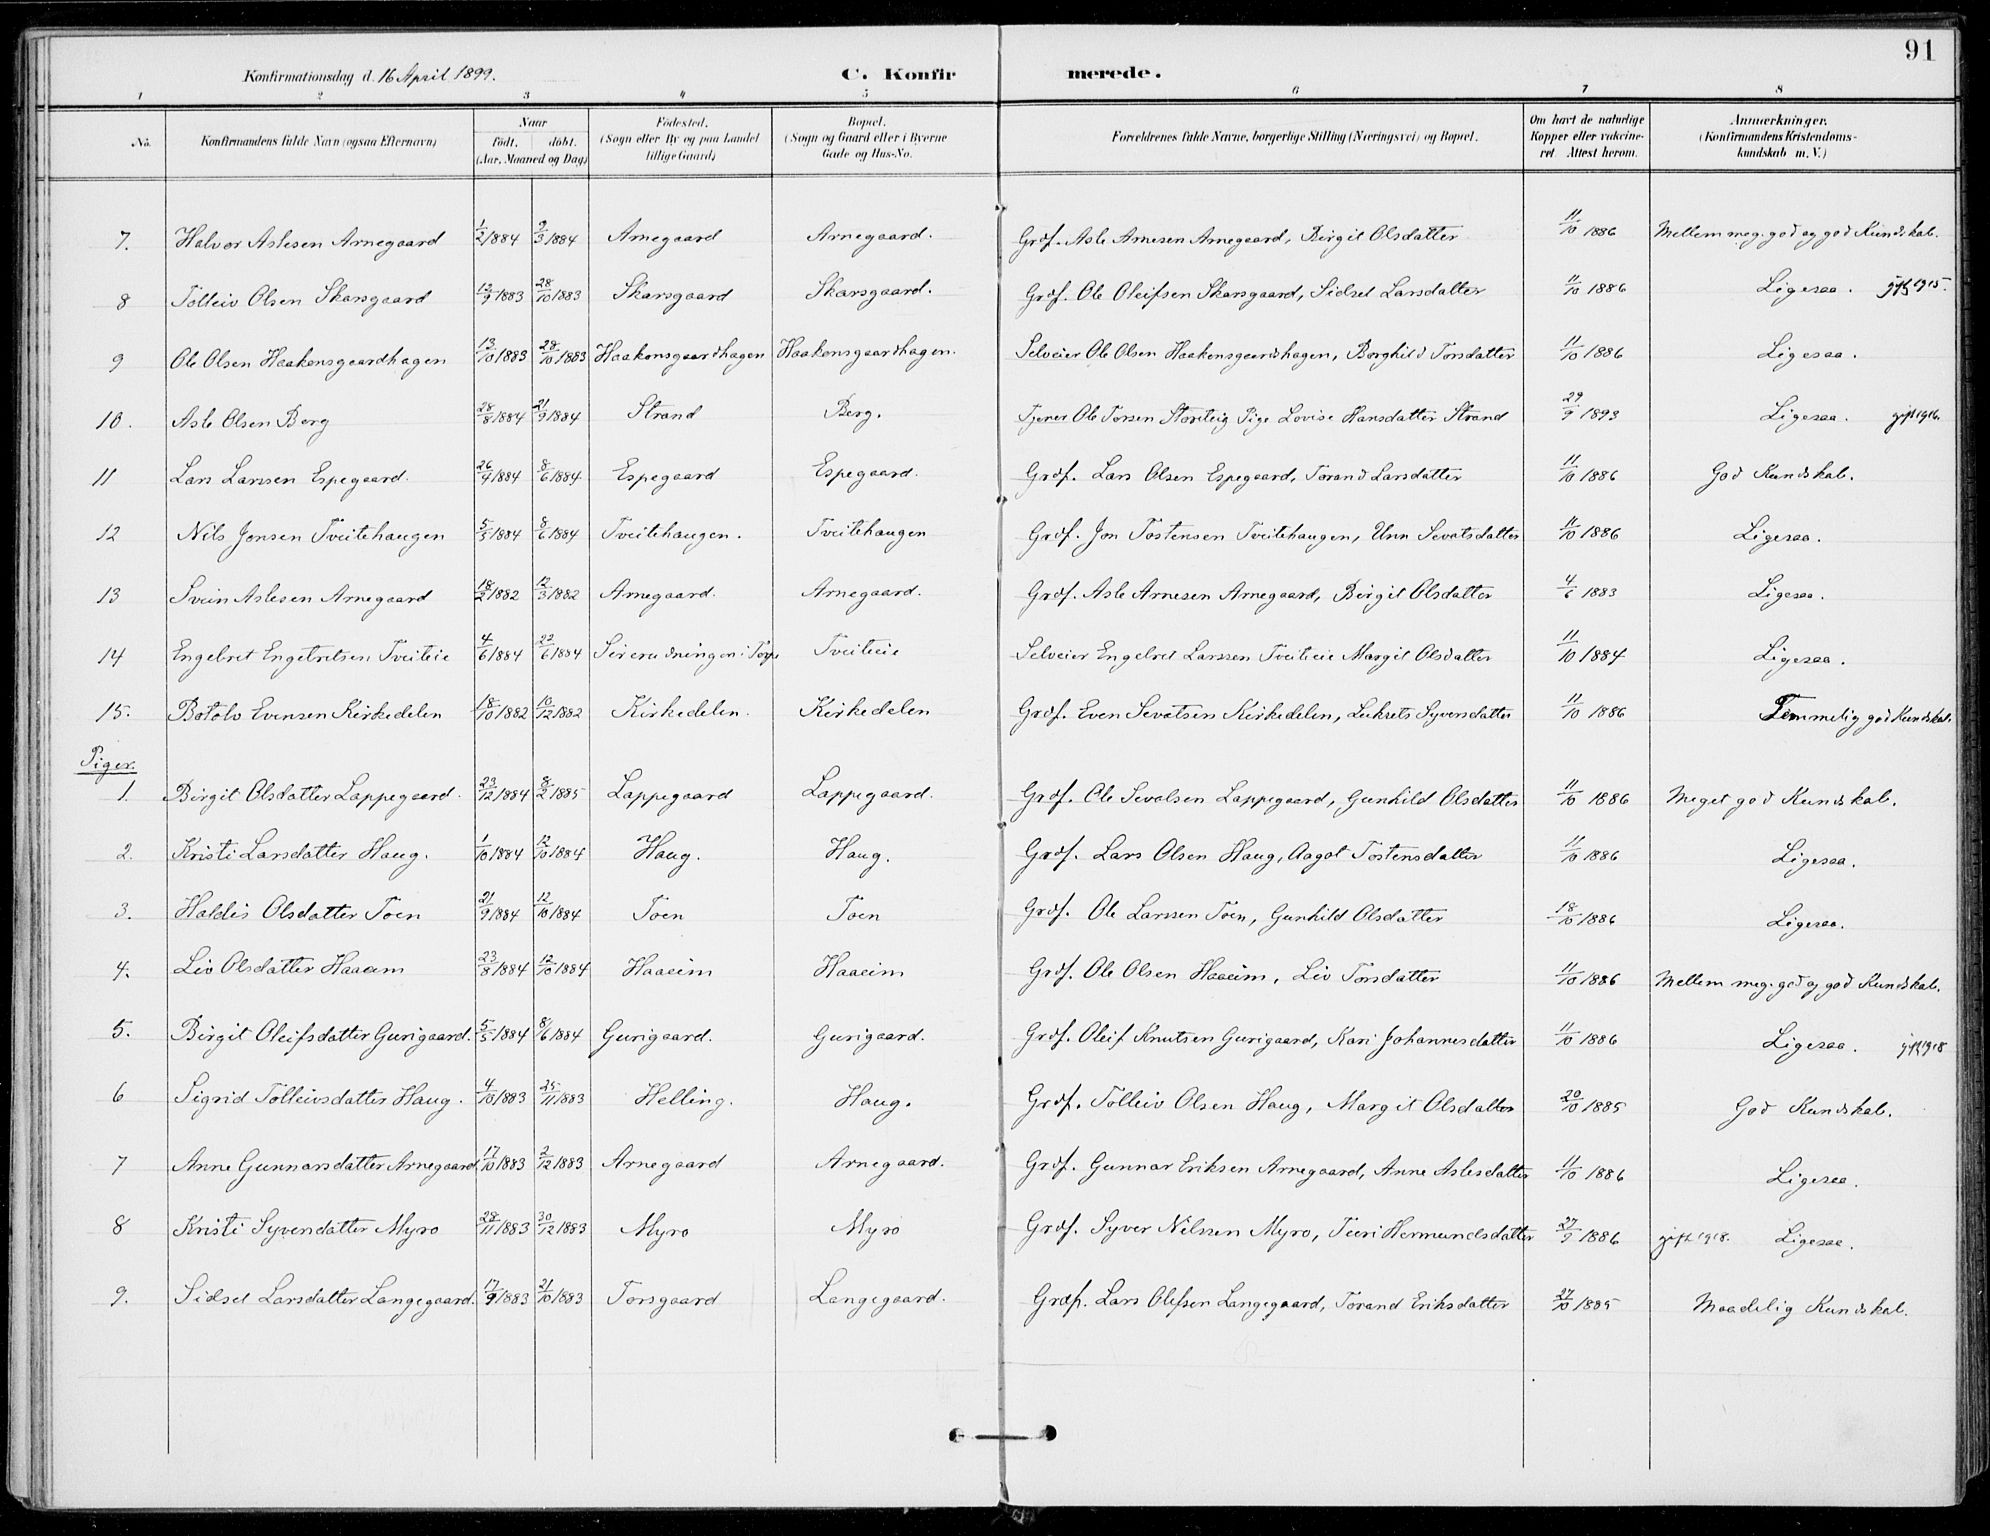 91
Konfirmationsdag d. 16 April 1899. C. Konfirmerede.
1 2 3 4 5 6 7 8
No. Konfirmandens fulde Navn (ogsaa Efternavn) Naar født. døbt. (Aar, Maaned og Dag) Fødested. (Sogn eller By og paa Landet tillige Gaard) Bopæl. (Sogn og Gaard eller i Byerne Gade og Hus-No. Forældrenes fulde Navne, borgerlige Stilling (Næringsvei) og Bopæl. Om havt de naturlige Kopper eller vakcineret. Attest herom. Anmærkninger. (Konfirmandens Kristendomskundskab m. V.)
7. Halvor Aslesen Arnegaard 1/2 1884 9/3 1884 Arnegaard Arnegaard. Grdf. Asle Arnesen Arnegaard, Birgit Olsdatter 11/10 1886 Mellem meg. god og god Kundskab.
8 Tolleiv Olsen Skarsgaard 12/9 1883 28/10 1883 Skarsgaard Skarsgaard. Grdf. Ole Oleifsen Skarsgaard, Sidsel Larsdatter 11/10 1886 Ligesaa. gift 1915.
9 Ole Olsen Haakensgaardhagen 13/10 1883 28/10 1883 Haakonsgaardhagen Haakonsgaardhagen. Selveier Ole Olsen Haakensgaardshagen, Borghild Torsdatter 11/10 1886 Ligesaa.
10. Asle Olsen Berg 28/8 1884 21/9 1884 Strand Berg. Tjener Ole Torsen Storiteig Pige Lovise Hansdatter Strand 29/9 1893 Ligesaa. gift 1916.
11 Lars Larssen Espegaard. 26/4 1884 8/6 1884 Espegaard Espegaard. Grdf. Lars Olsen Espegaard, Torand Larsdatter 11/10 1886 God Kundskab.
12 Nils Jonsen Tveitehaugen 5/5 1884 8/6 1884 Tveitehaugen. Tveitehaugen Grdf. Jon Tostensen Tveitehaugen, Unn Sevatsdatter 11/10 1886 Ligesaa.
13 Svein Aslesen Arnegaard 18/2 1882 12/3 1882 Arnegaard. Arnegaard. Grdf. Asle Arnesen Arnegaard, Birgit Olsdatter 4/6 1883 Ligesaa.
14 Engebret Engebretsen Tveiteie 4/6 1884 22/6 1884 i Torpe Tveiteie Selveier Engebret Larssen Tveiteie Margit Olsdatter 11/10 1884 Ligesaa.
15. Botolv Evensen Kirkedelen 18/10 1882 10/12 1882 Kirkedelen. Kirkedelen Grdf. Even Sevatsen Kirkedelen, Lukrets Syversdatter 11/10 1886 Temmelig god Kundskab.
Piger.
1. Birgit Olsdatter Lappegaard. 23/12 1884 8/2 1885 Lappegaard Lappegaard. Grdf. Ole Sevatsen Lappegaard, Gunhild Olsdatter 11/10 1886 Meget god Kundskab.
2. Kristi Larsdatter Haug. 1/10 1884 12/10 1884 Haug. Haug. Grdf. Lars Olsen Haug, Aagot Tostensdatter 11/10 1886 Ligesaa.
3. Haldis Olsdatter Toen 21/9 1884 12/10 1884 Toen Toen Grdf. Ole Larssen Toen, Gunhild Olsdatter 18/10 1886 Ligesaa.
4. Liv Olsdatter Haaeim 23/8 1884 12/10 1884 Haaeim Haaeim Grdf. Ole Olsen Haaeim, Liv Torsdatter 11/10 1886 Mellem meg. god og god Kundskab.
5. Birgit Oleifsdatter Gurigaard. 5/5 1884 8/6 1884 Gurigaard. Gurigaard. Grdf. Oleif Knutsen Gurigaard, Kari Johannesdatter 11/10 1886 Ligesaa. gift 1918
6 Sigrid Tolleivsdatter Haug. 4/10 1883 25/11 1883 Helling. Haug. Grdf. Tolleiv Olsen Haug, Margit Olsdatter 20/10 1885 God Kundskab.
7 Anne Gunnarsdatter Arnegaard 17/10 1883 2/12 1883 Arnegaard Arnegaard. Grdf. Gunnar Eriksen Arnegaard, Anne Aslesdatter 11/10 1886 Ligesaa.
8 Kristi Syversdatter Myro 28/11 1883 30/12 1883 Myro Myro Grdf. Syver Nilssen Myro, Turi Hermundsdatter 27/9 1886 gift 1918. Ligesaa.
9. Sidsel Larsdatter Langegaard. 17/9 1883 21/10 1883 Torsgaard Langegaard. Grdf. Lars Olefsen Langegaard, Torand Eriksdatter 27/10 1885 Maadelig Kundskab.